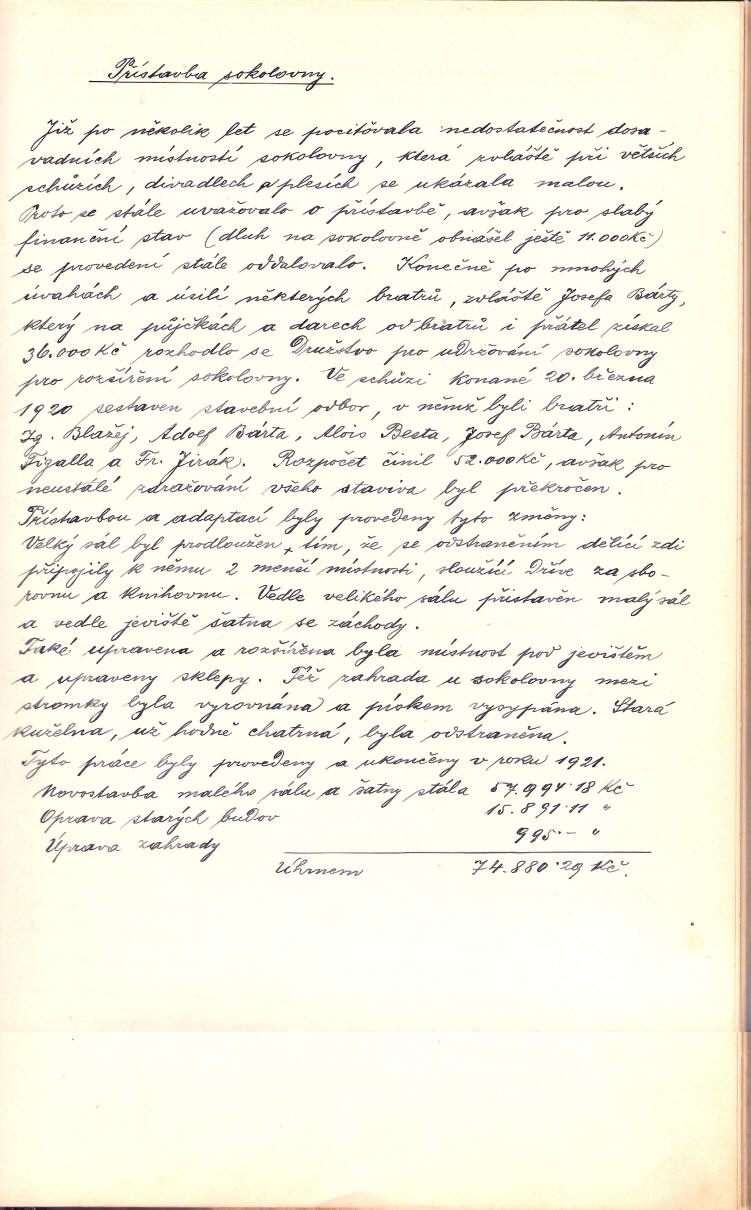 Přístavba sokolovny.
Již po několik let se pociťovala nedostatečnost dosa-
vadních místností sokolovny, která zvláště při větších
schůzích, divadlech a plesích se ukázala malou.
Proto se stále uvažovalo o přístavbě, avšak pro slabý
finanční stav (dluh na sokolovně obnášel ještě 11.000Kč)
se provedení stále oddalovalo. Konečně po mnohých
úvahách a úsilí některých bratrů, zvláště Josefa Bárty,
který na půjčkách a darech od bratrů i přátel získal
36.000 Kč rozhodlo se Družstvo pro udržování sokolovny
pro rozšíření sokolovny. Ve schůzi konané 20. března
1920 sestaven stavební odbor, v němž byli bratři:
Ig. Blažej, Adolf Bárta, Alois Besta, Josef Bárta, Antonín
Figalla a Fr. Jirák. Rozpočet činil 52.000Kč, avšak pro
neustálé zdražování všeho staviva byl překročen.
Přístavbou a adaptací byly provedeny tyto změny:
Velký sál byl prodloužen tím, že se odstraněním dělící zdi
připojily k němu 2 menší místnosti, sloužící dříve za sbo-
rovnu a knihovnu. Vedle velikého sálu přistavěn malý sál
a vedle jeviště šatna se záchody.
Také upravena a rozšířena byla místnost pod jevištěm
a upraveny sklepy. Též zahrada u sokolovny mezi
stromky byla vyrovnána a pískem vysypána. Stará
kuželna, už hodně chatrná, byla odstraněna.
Tyto práce byly provedeny a ukončeny v roku 1921.
Novostavba malého sálu a šatny stála 57.994·18 Kč
Oprava starých budov 15.891·11 "
Úprava zahrady 995·— "
Úhrnem 74.880·29 Kč.